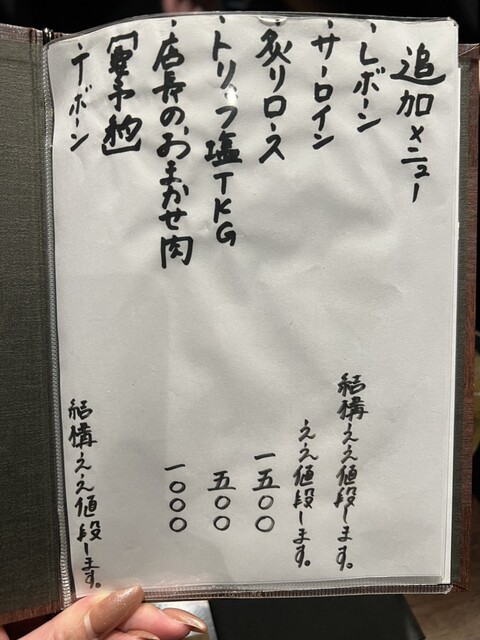 追加メニュー
・Lボーン 結構ええ値段します。
・サーロイン ええ値段します。
・炙りロース 一五〇〇
・トリュフ塩TKG 五〇〇
・店長のおまかせ肉 一〇〇〇
【要予約】
・Tボーン 結構ええ値段します。